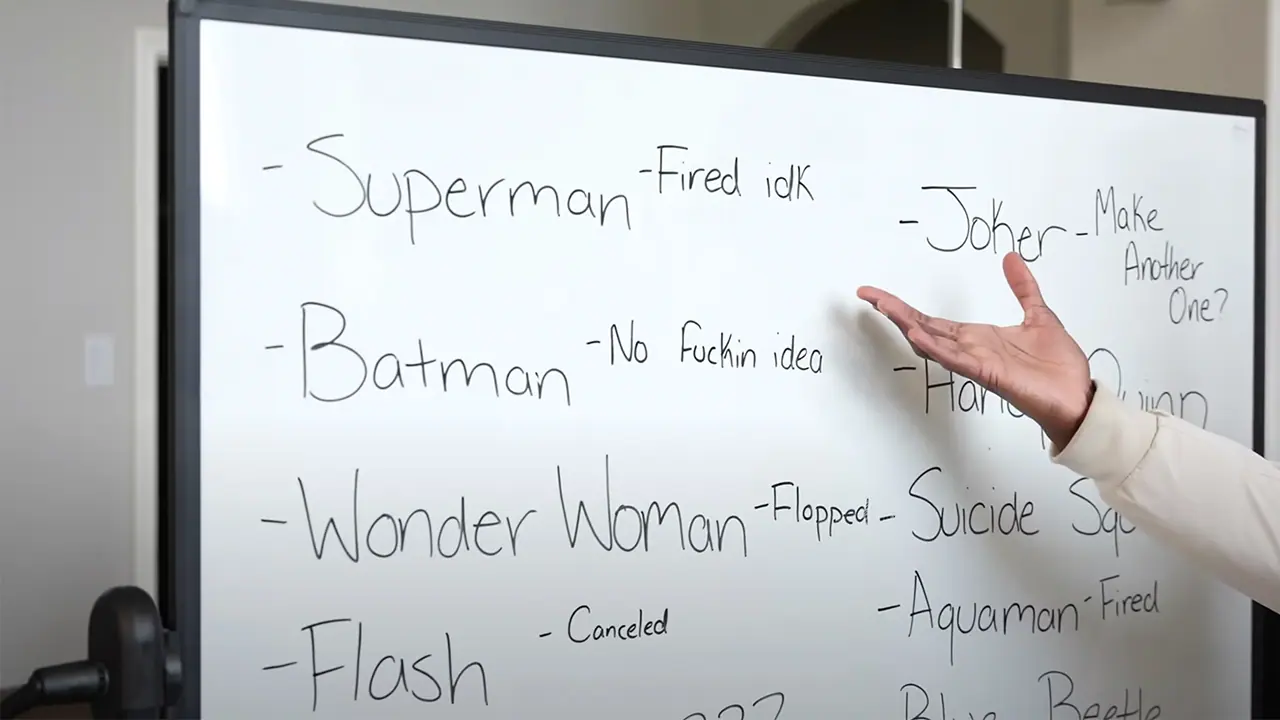 - Superman - Fired idk
- Batman - No Fuckin idea
- Wonder Woman - Flopped
- Flash - Canceled
???
- Joker - Make
Another
One?
- Harley Quinn
- Suicide
- Aquaman - Fired
Blue Beetle